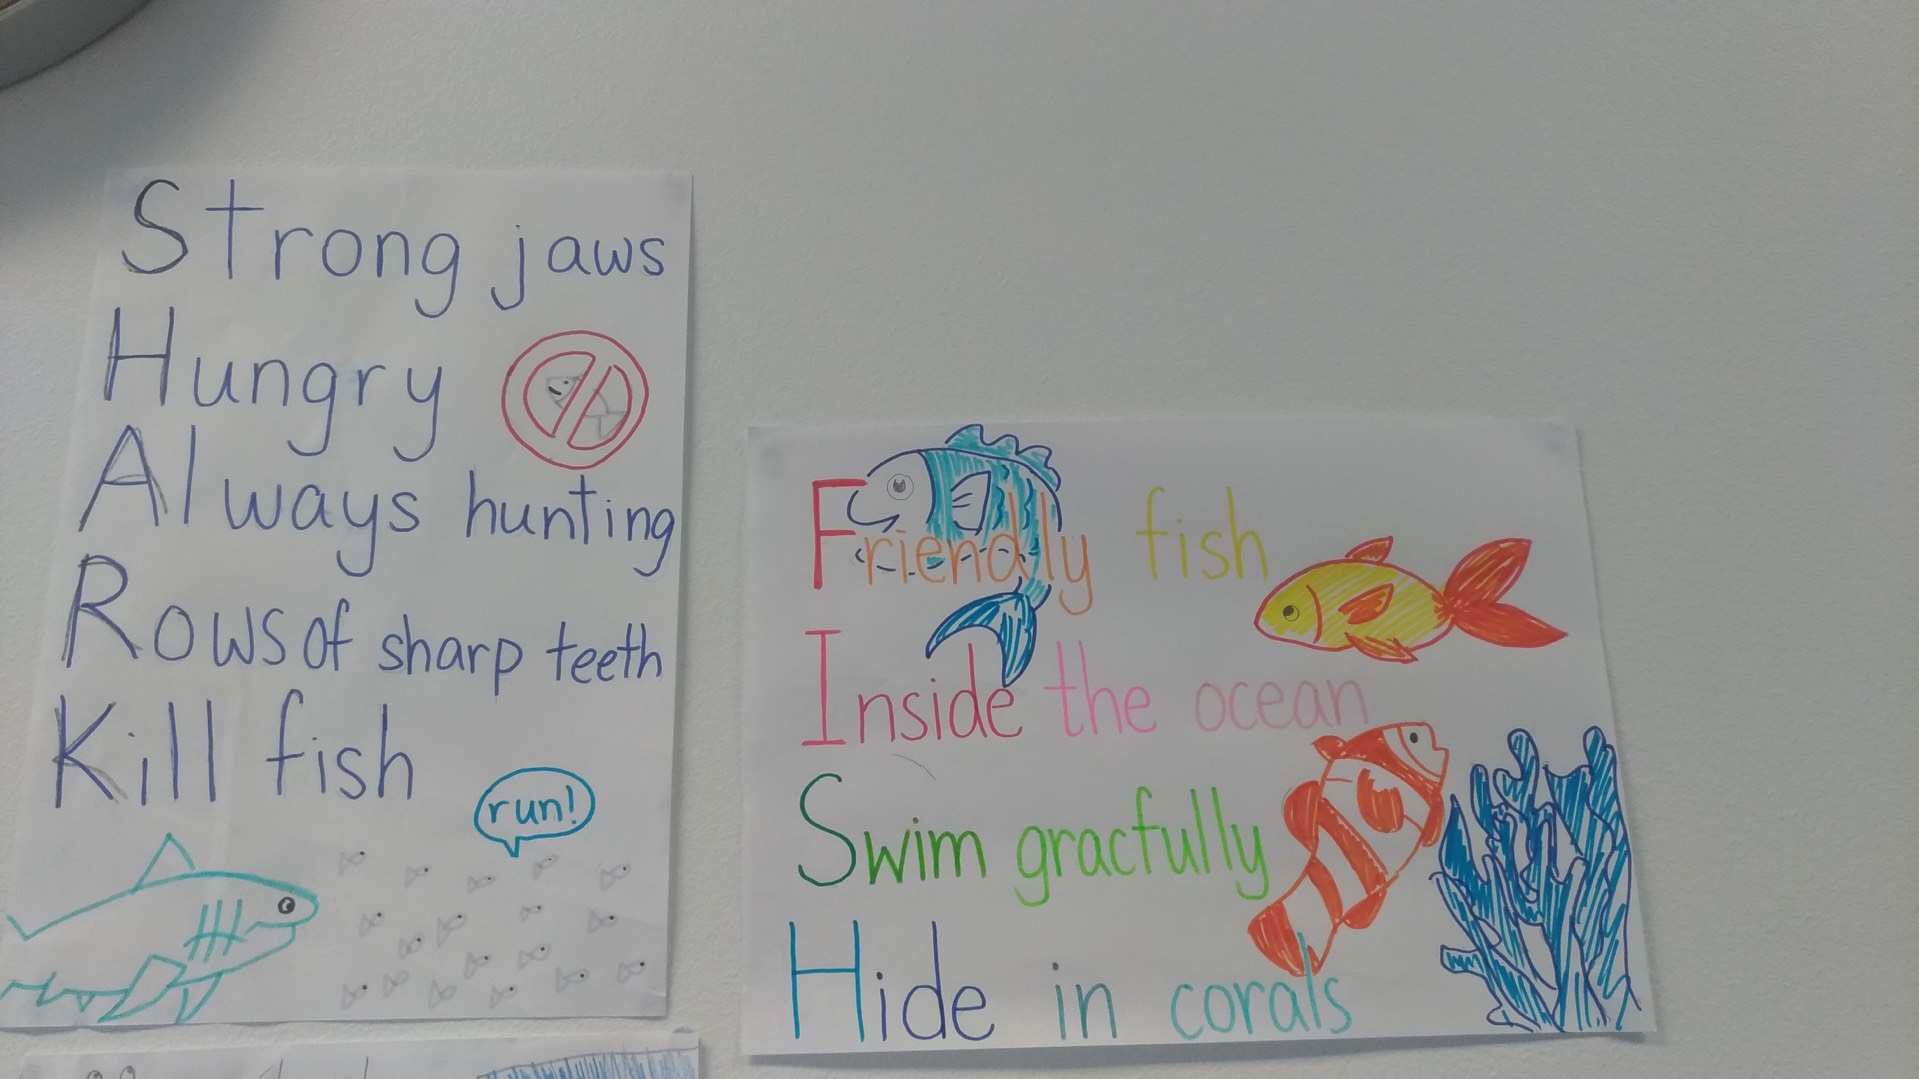 Strong jaws
Hungry
Always hunting
Rows of sharp teeth
Kill fish
run!
Friendly fish
Inside the ocean
Swim gracfully
Hide in corals